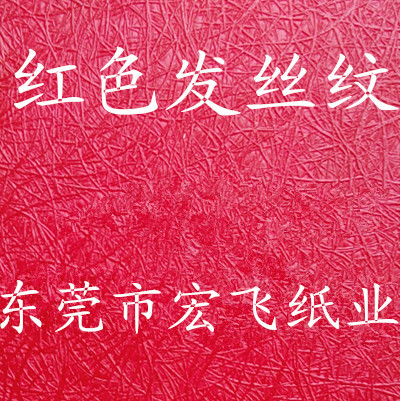 红色发丝纹
东莞市宏飞纸业